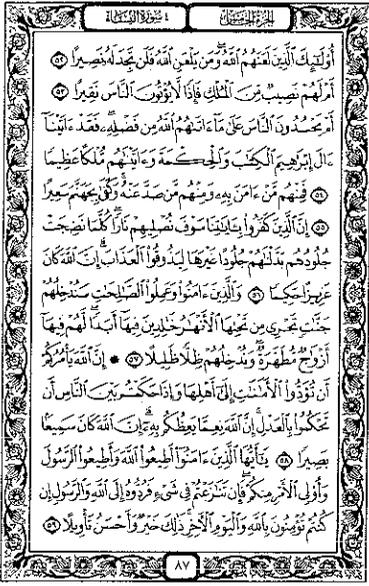 الجزء الخامس
٤ سورة النساء
أُولَٰئِكَ الَّذِينَ لَعَنَهُمُ اللَّهُ وَمَن يَلْعَنِ اللَّهُ فَلَن تَجِدَ لَهُ نَصِيرًا ٥٢
أَمْ لَهُمْ نَصِيبٌ مِّنَ الْمُلْكِ فَإِذًا لَّا يُؤْتُونَ النَّاسَ نَقِيرًا ٥٣
أَمْ يَحْسُدُونَ النَّاسَ عَلَىٰ مَا ءَاتَىٰهُمُ اللَّهُ مِن فَضْلِهِ فَقَدْ ءَاتَيْنَا
ءَالَ إِبْرَٰهِيمَ الْكِتَٰبَ وَالْحِكْمَةَ وَءَاتَيْنَٰهُم مُّلْكًا عَظِيمًا
٥٤ فَمِنْهُم مَّنْ ءَامَنَ بِهِ وَمِنْهُم مَّن صَدَّ عَنْهُ وَكَفَىٰ بِجَهَنَّمَ سَعِيرًا
٥٥ إِنَّ الَّذِينَ كَفَرُوا بِـَٔايَٰتِنَا سَوْفَ نُصْلِيهِمْ نَارًا كُلَّمَا نَضِجَتْ
جُلُودُهُم بَدَّلْنَٰهُمْ جُلُودًا غَيْرَهَا لِيَذُوقُوا الْعَذَابَ إِنَّ اللَّهَ كَانَ
عَزِيزًا حَكِيمًا ٥٦ وَالَّذِينَ ءَامَنُوا وَعَمِلُوا الصَّٰلِحَٰتِ سَنُدْخِلُهُمْ
جَنَّٰتٍ تَجْرِي مِن تَحْتِهَا الْأَنْهَٰرُ خَٰلِدِينَ فِيهَا أَبَدًا لَّهُمْ فِيهَا
أَزْوَٰجٌ مُّطَهَّرَةٌ وَنُدْخِلُهُمْ ظِلًّا ظَلِيلًا ٥٧ ۞ إِنَّ اللَّهَ يَأْمُرُكُمْ
أَن تُؤَدُّوا الْأَمَٰنَٰتِ إِلَىٰ أَهْلِهَا وَإِذَا حَكَمْتُم بَيْنَ النَّاسِ أَن
تَحْكُمُوا بِالْعَدْلِ إِنَّ اللَّهَ نِعِمَّا يَعِظُكُم بِهِ إِنَّ اللَّهَ كَانَ سَمِيعًا
بَصِيرًا ٥٨ يَٰٓأَيُّهَا الَّذِينَ ءَامَنُوا أَطِيعُوا اللَّهَ وَأَطِيعُوا الرَّسُولَ
وَأُولِي الْأَمْرِ مِنكُمْ فَإِن تَنَٰزَعْتُمْ فِي شَيْءٍ فَرُدُّوهُ إِلَى اللَّهِ وَالرَّسُولِ إِن
كُنتُمْ تُؤْمِنُونَ بِاللَّهِ وَالْيَوْمِ الْءَاخِرِ ذَٰلِكَ خَيْرٌ وَأَحْسَنُ تَأْوِيلًا ٥٩
٨٧